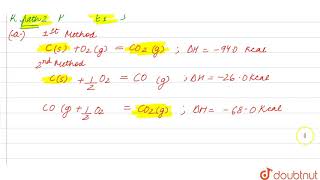 (a) 1st Method
C(s) + O2 (g) = CO2 (g) ; ΔH = -94.0 Kcal
2nd Method
C(s) + 1/2 O2 = CO (g) ; ΔH = -26.0 Kcal
CO (g) + 1/2 O2 = CO2(g) ; ΔH = -68.0 Kcal
doubtnut